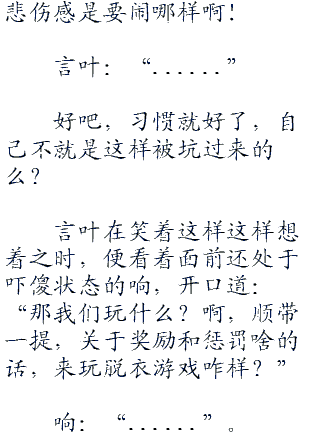 悲伤感是要闹哪样啊！
言叶：“......”
好吧，习惯就好了，自
己不就是这样被坑过来的
么？
言叶在笑着这样这样想
着之时，便看着面前还处于
吓傻状态的响，开口道：
“那我们玩什么？啊，顺带
一提，关于奖励和惩罚啥的
话，来玩脱衣游戏咋样？”
响：“......”。